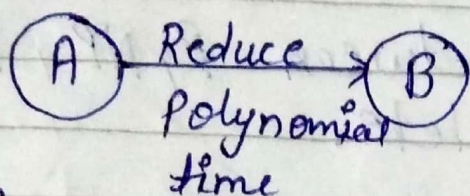 A Reduce B
Polynomial
time